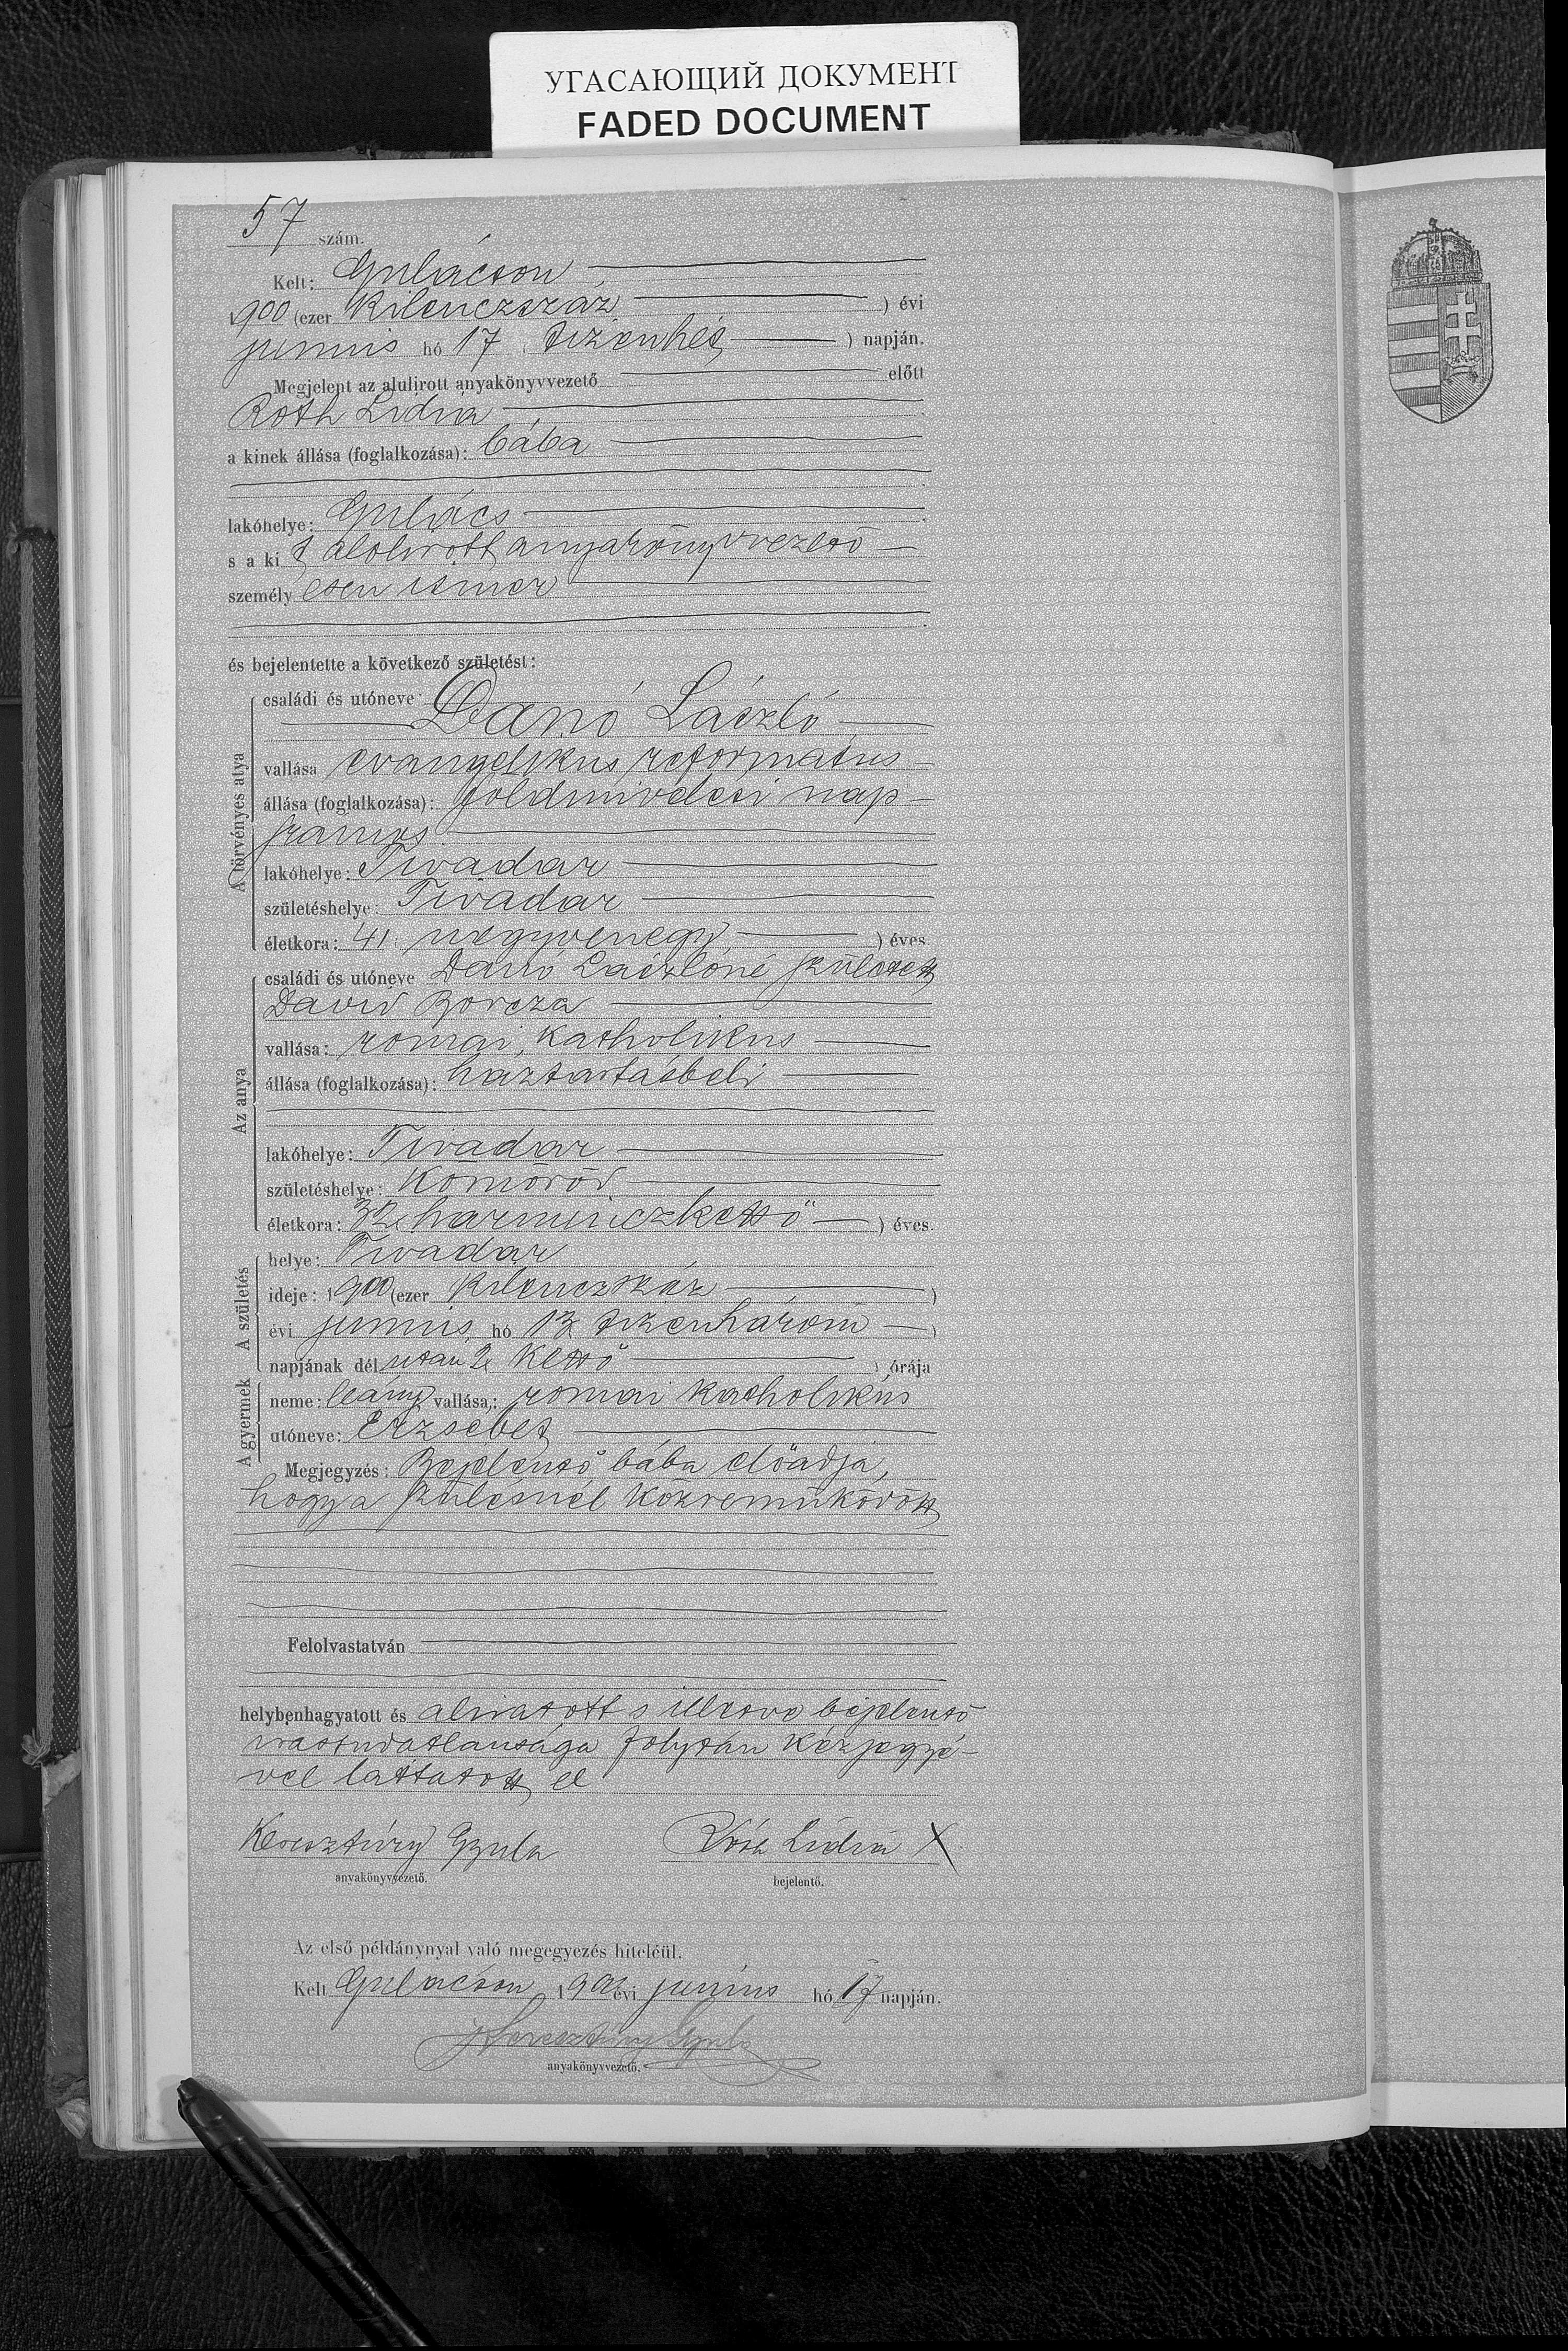 УГАСАЮЩИЙ ДОКУМЕНТ
FADED DOCUMENT
57 szám.
Kelt: Gulácson
1900 (ezer kilenczszáz ) évi
junius hó 17 ( tizenhét ) napján.
Megjelent az alulirott anyakönyvvezető előtt
Roth Lidia
a kinek állása (foglalkozása): bába
lakóhelye: Gulács
s a ki t alolirott anyakönyvvezető
személy esen ismer
és bejelentette a következő születést:
A törvényes atya
családi és utóneve:
Danó László
vallása evangelikus reformatus
állása (foglalkozása): földmivelesi nap-
szamos
lakóhelye: Tivadar
születéshelye: Tivadar
életkora: 41 ( negyvenegy ) éves
Az anya
családi és utóneve Danó Lászlóné született
David Borcza
vallása: romai katholikus
állása (foglalkozása): háztartásbeli
lakóhelye: Tivadar
születéshelye: Kömörőd
életkora: 32 ( harminczkettő ) éves.
A születés
helye: Tivadar
ideje: 1900 (ezer kilenczszáz )
évi junius hó 13 ( tizenhárom )
napjának dél utan 2 ( kettő ) órája
A gyermek
neme: leány vallása: romai katholikus
utóneve: Erzsébet
Megjegyzés: Bejelentő bába előadja,
hogy a szülésnél közreműködött
Felolvastatván
helybenhagyatott és aliratott s illetve bejelentő
irástudatlansága folytán kézjegyé-
vel láttatott el
Keresztúry Gyula Róth Lidia X
anyakönyvvezető. bejelentő.
Az első példánynyal való megegyezés hiteléül.
Kelt Gulácson 1900 évi junius hó 17 napján.
Keresztúry Gyula
anyakönyvvezető.